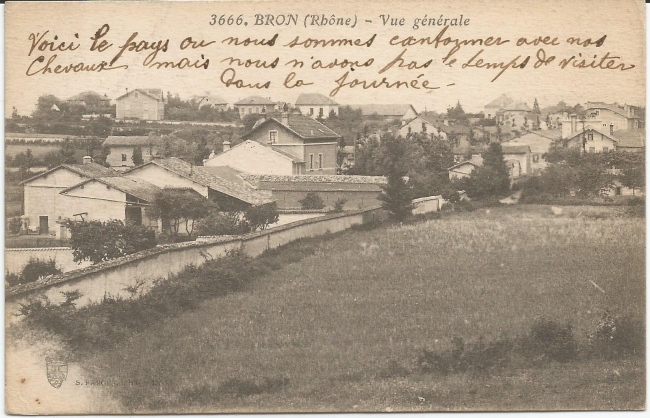 3666. BRON (Rhône) - Vue générale
Voici le pays ou nous sommes cantormer avec nos
Chevaux mais nous n'avons pas le temps de visiter
Dans la Journée -